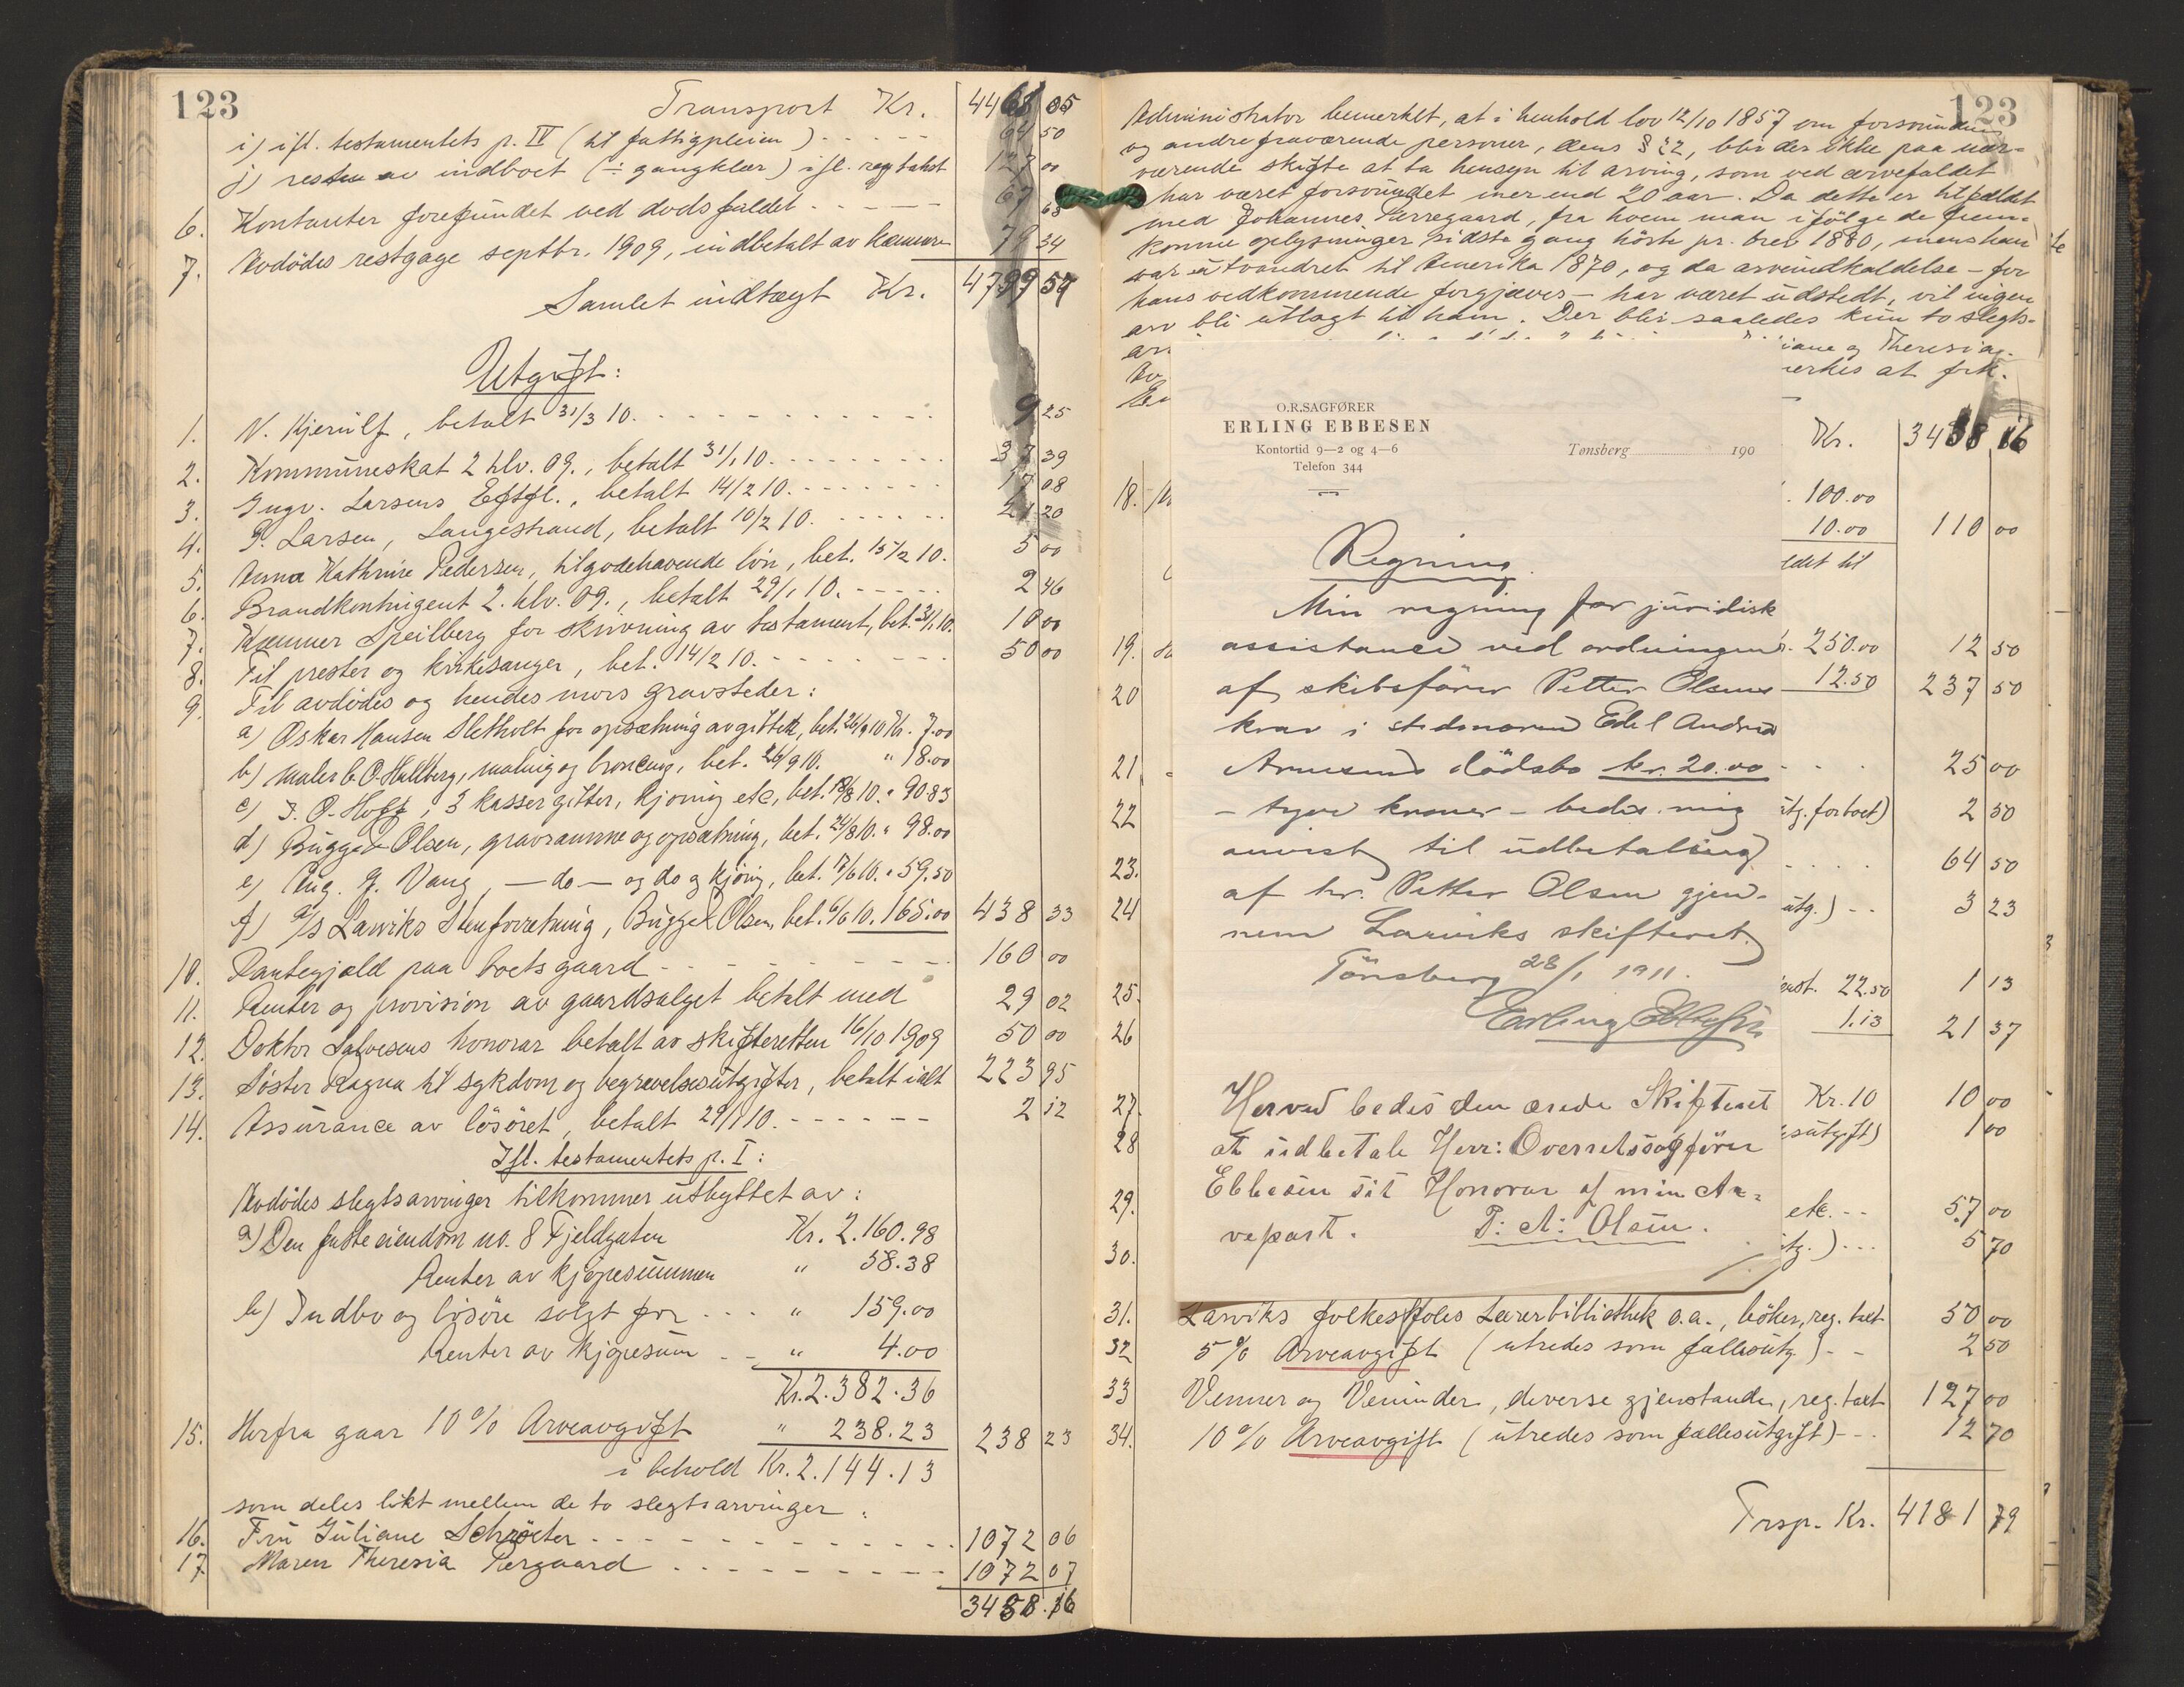 123
Transport Kr. 4461 05
i) ifl. testamentets p. IV (til fattigpleien) 64 50
j) resten av indboet (÷ gangklær) ifl. reg. takst 127 00
6. Kontanter forefundet ved dødsfaldet 67 68
7. Avdødes restgage septbr. 1909, indbetalt av kæmner 79 34
Samlet indtægt Kr. 4799 57
Utgift:
1. N. Kjerulf, betalt 31/3 10. 9 25
2. Kommuneskat 2 hlv. 09., betalt 31/1 10. 37 39
3. Ingv. Larsens Eftfl., betalt 14/2 10. 17 08
4. P. Larsen, Langestrand, betalt 10/2 10. 21 20
5. Anna Kathrine Pedersen, tilgodehavende lön, bet. 15/2 10. 5 00
6. Brandkontingent 2. hlv. 09., betalt 29/1 10. 2 46
7. Kæmner Speilberg for skrivning av testament, bet. 31/1 10. 10 00
8. Til prester og kirkesanger, bet. 14/2 10. 50 00
9. Til avdødes og hendes mors gravsteder:
a) Oskar Hansen Sletholt for opsætning av gitter, bet. 26/9 10 Kr. 7.00
b) Maler C. O. Hallberg, maling og broncing, bet. 26/9 10. " 18.00
c) J. O. Hoff, 3 kasser gitter, kjöring etc, bet. 18/8 10. " 90.83
d) Bugge & Olsen, gravramme og opsætning, bet. 24/8 10. " 98.00
e) Aug. G. Vang, — do — og do g kjöring, bet. 17/6 10. " 59.50
f) A/S Larviks Stenforretning, Bugge & Olsen, bet. 6/6 10. 165.00 438 33
10. Pantegjæld paa boets gaard 160 00
11. Renter og provision av gaardsalget betalt med 29 02
12. Doktor Salvesens honorar betalt av skifteretten 16/10 1909 50 00
13. Søster Ragna til sykdom og begravelsesutgifter, betalt ialt 223 95
14. Assurance av lösöret, betalt 29/1 10. 2 12
Ifl. testamentets p. I:
Avdødes slegtsarvinger tilkommer utbyttet av:
a) Den faste eiendom no. 8 Fjeldgaten Kr. 2.160.98
Renter av kjøpesummen " 58.38
b) Indbo og lösöre solgt for " 159.00
Renter av kjøpesum " 4.00
Kr. 2.382.36
15. Herfra gaar 10% Arveavgift " 238.23 238 23
i behold Kr. 2.144.13
som deles likt mellem de to slegtsarvinger:
16. Fru Juliane Schröter 1072 06
17. Maren Theresia Pergaard 1072 07
3488.16
123
Administrator bemerket, at i henhold lov 12/10 1857 om forsvundne
og andre fraværende personer, dens § 22, blir der ikke paa nær-
værende skifte at ta hensyn til arving, som ved arvefaldet
har været forsvundet mer end 20 aar. Da dette er tilfældet
med Johannes Perregaard, fra hvem man ifölge de frem-
komne oplysninger sidste gang hörte pr. brev 1880, mens han
var utvandret til Amerika 1870, og da arveindkaldelse – for
hans vedkommende forgjæves – har været udstedt, vil ingen
arv bli utlagt til ham. Der blir saaledes kun to slegts-
iane og Theresia
erkes at frk.
Kr. 3488 16
100.00
10.00 110 00
ldet til
O.R.SAGFØRER
ERLING EBBESEN
Kontortid 9—2 og 4—6
Telefon 344
Tønsberg 190
Regning.
Min regning for juridisk
assistance ved ordningen
af skibsförer Petter Olsens
krav i stedmoren Edel Andrea
Arnesens dödsbo kr. 20.00
– tyve kroner – bedes mig
anvist til udbetaling
af hr. Petter Olsen gjen-
nem Larviks skifteret.
Tönsberg 28/1 1911.
Erling Ebbesen
Herved bedes den ærede Skifteret
at udbetale Herr: Overretssagförer
Ebbesen sit Honorar af min Ar-
vepart. P: A: Olsen.
18.
19. 250.00 12 50
20 12.50 237 50
21. 25 00
22 utg. for boet) 2 50
23. 64 50
24 utg.) 3 23
25. 22.50 1 13
26 1.13 21 37
27. Kr. 10 10 00
28 sutgift) 1 00
29. etc. 57 00
30. tg.) 5 70
31. Larviks folkeskoles Lærerbibliothek o.a., böker, reg. taxt 50 00
32 5% Arveavgift (utredes som fællesutg.) 2 50
33 Venner og Veninder, diverse gjenstande, reg. taxt 127 00
34. 10% Arveavgift (utredes som fællesutgift) 12 70
Trsp. Kr. 4181 79